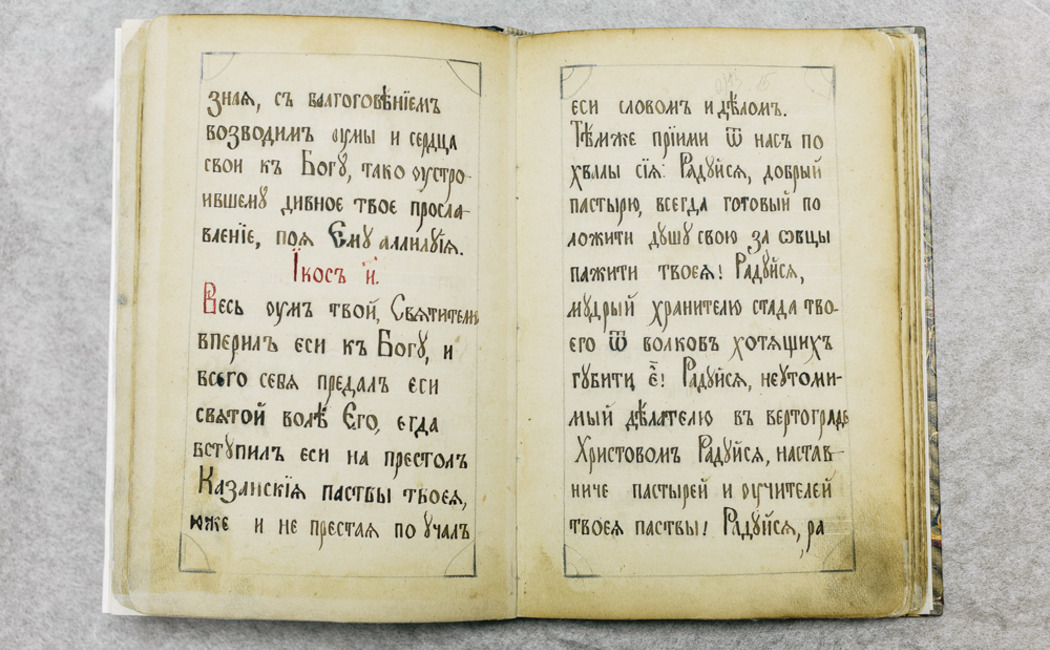 зная, съ балгоговѣнїемъ
возводимъ оумы и сердца
свои къ Богꙋ, тако оустро-
ившемꙋ дивное твое просла-
вленїе, поя Емꙋ аллилꙋїя.
Їкосъ и҃.
Весь оумъ твой, Святителю
вперилъ еси къ Богꙋ, и
всего себя предалъ еси
святой волѣ Его, егда
встꙋпилъ еси на престолъ
Казанскїѧ паствы твоеѧ,
юже и не престаѧ поꙋчалъ
еси словомъ и дѣломъ.
Тѣмже прїими ѿ насъ по
хвалы сїѧ: Радꙋйсѧ, добрый
пастырю, всегда готовый по
ложити дꙋшꙋ свою за ѡвцы
пажити твоеѧ! Радꙋйсѧ,
мꙋдрый хранителю стада тво-
его ѿ волковъ хотѧщихъ
гꙋбити е҃! Радꙋйсѧ, неꙋтоми-
мый дѣлателю въ вертограде
Христовомъ Радꙋйсѧ, настав-
ниче пастырей и оучителей
твоеѧ паствы! Радꙋйсѧ, ра